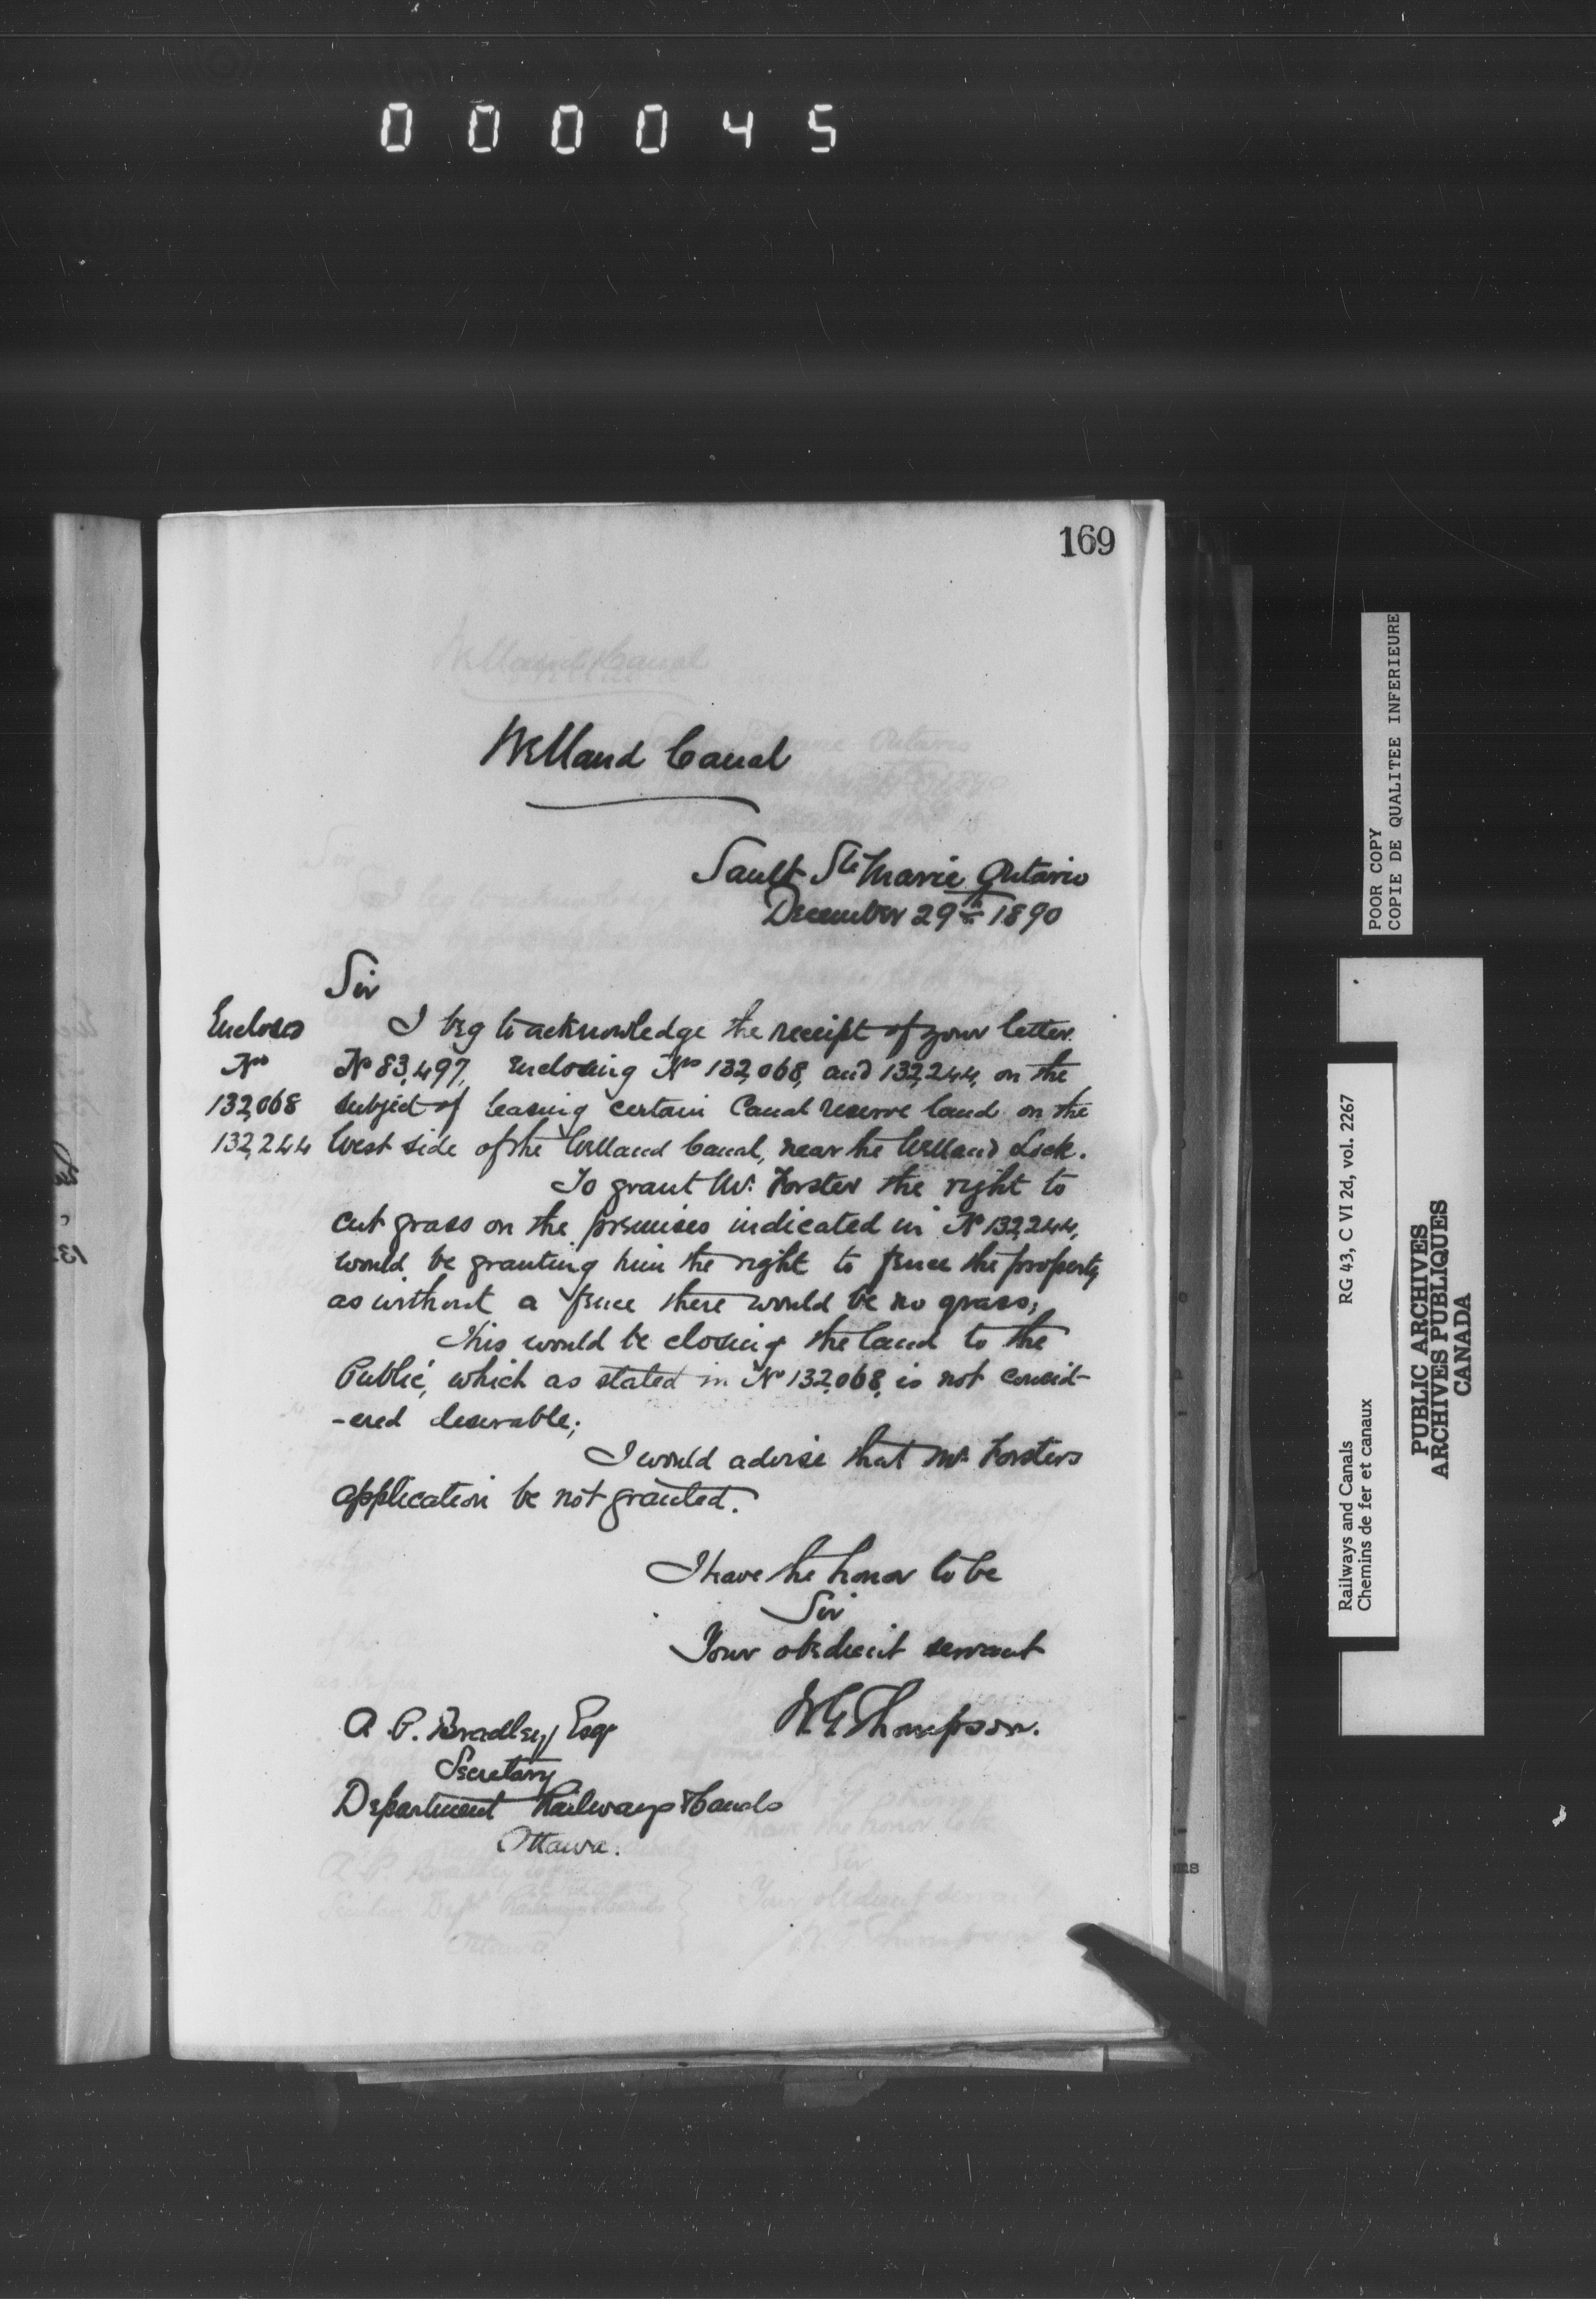 000045
169
Welland Canal
Sault Ste Marie Ontario
December 29th 1890
Sir
Encloses I beg to acknowledge the receipt of your letter
Nos No 83,497, enclosing Nos 132,068, and 132,244, on the
132,068 subject of leasing certain Canal reserve land on the
132,244 West side of the Welland Canal, near the Welland Lock.
To grant Mr. Forster the right to
cut grass on the premises indicated in No 132,244,
would be granting him the right to fence the property
as without a fence there would be no grass;
This would be closing the land to the
Public, which as stated in No 132,068, is not consid-
-ered desirable;
I would advise that Mr Forsters
application be not granted.
I have the honor to be
Sir
Your obedient servant
W G Thompson.
A. P. Bradley Esqr
Secretary
Department Railways & Canals
Ottawa.
POOR COPY
COPIE DE QUALITEE INFERIEURE
Railways and Canals RG 43, C VI 2d, vol. 2267
Chemins de fer et canaux
PUBLIC ARCHIVES
ARCHIVES PUBLIQUES
CANADA